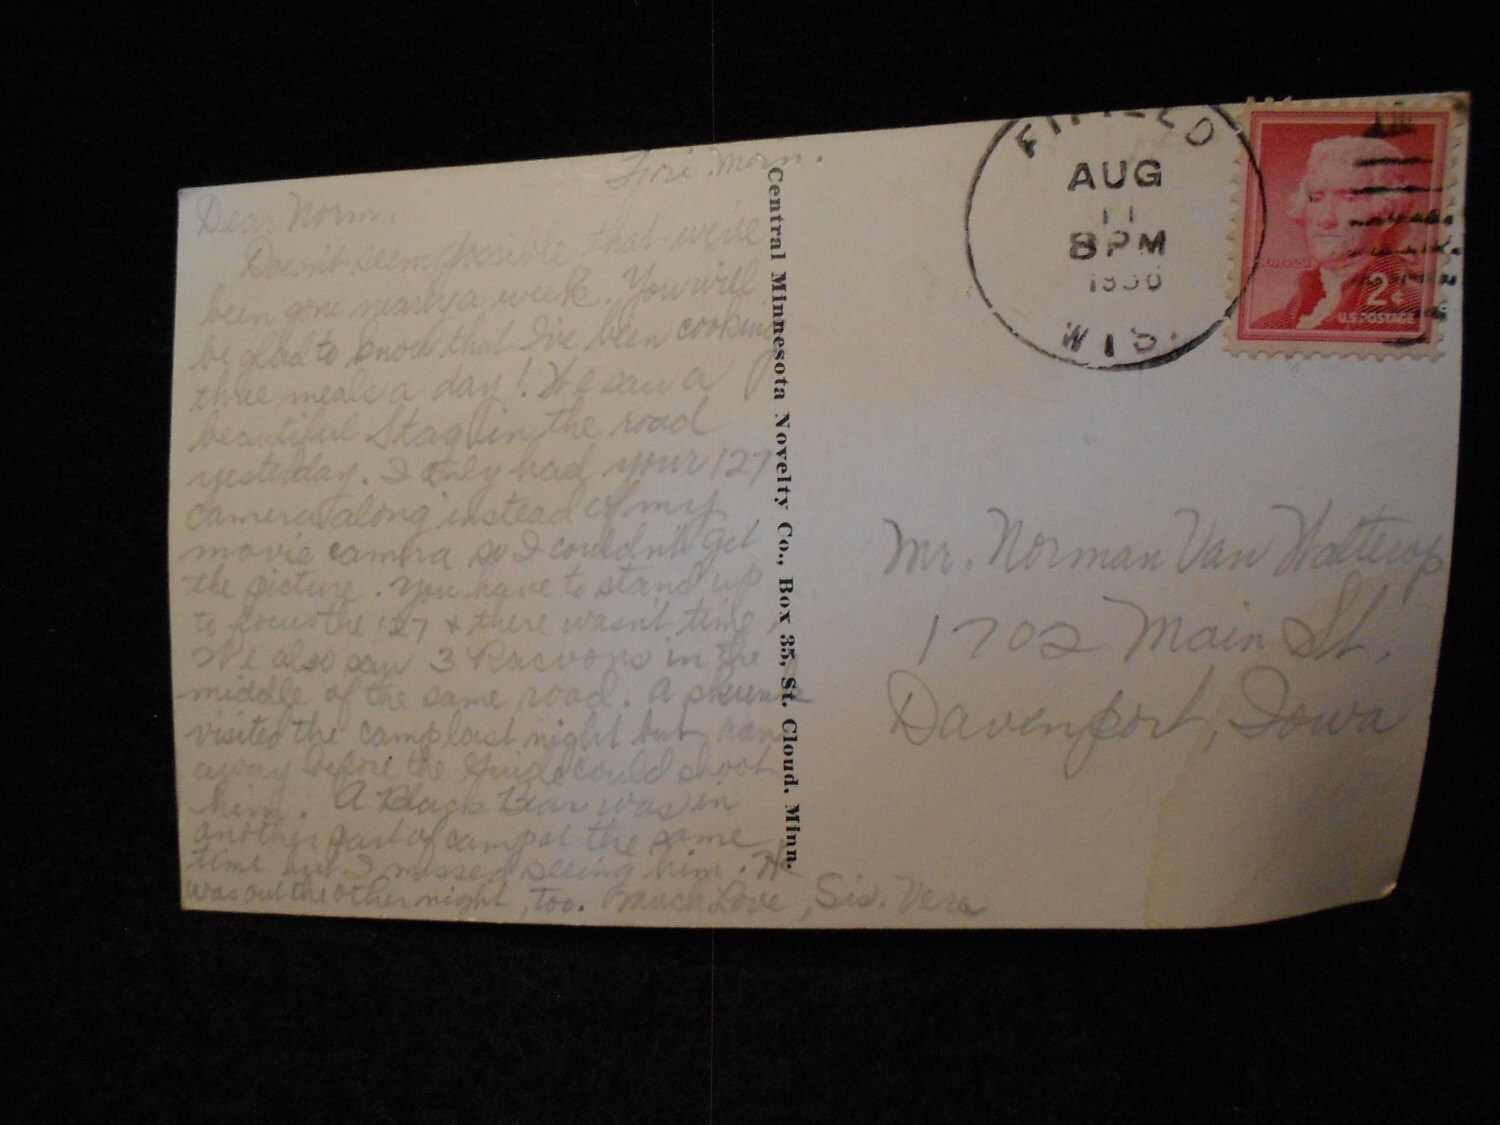 Fri. Morn.
Dear Norm,
Doesn't seem possible that we've
been gone nearly a week. You will
be glad to know that I've been cooking
three meals a day! We saw a
beautiful Stag in the road
yesterday. I only had your 127
camera along instead of my
movie camera so I couldn't get
the picture. You have to stand up
to focus the 127 & there wasn't time.
We also saw 3 Racoons in the
middle of the same road. A skunk
visited the camp last night but ran
away before the Guide could shoot
him. A Black Bear was in
another part of camp at the same
time but I missed seeing him. He
was out the other night, too. Much Love, Sis. Vera
Central Minnesota Novelty Co., Box 35, St. Cloud, Minn.
FIFIELD
AUG
11
8 PM
1956
WIS.
JEFFERSON
2¢
U.S. POSTAGE
Mr. Norman Van Watterop
1702 Main St.
Davenport, Iowa